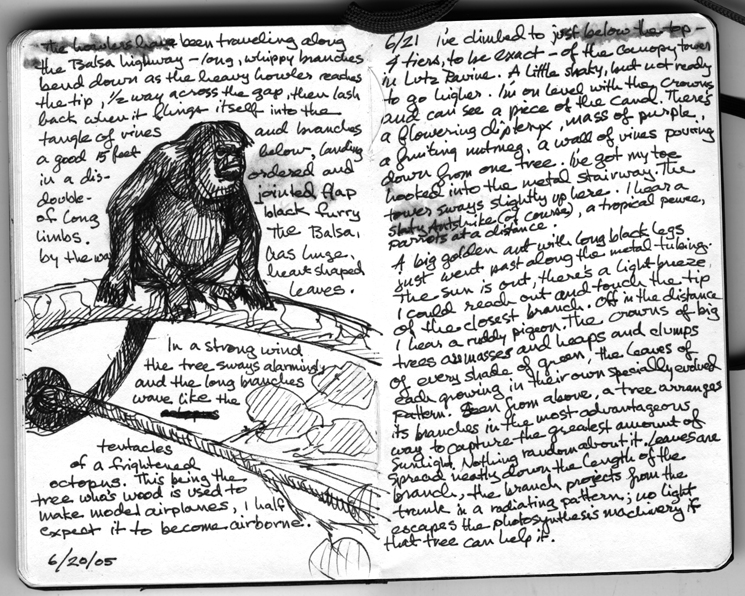 the howlers have been traveling along
the Balsa highway - long, whippy branches
bend down as the heavy howler reaches
the tip, 1/2 way across the gap, then lash
back when it flings itself into the
tangle of vines and branches
a good 15 feet below, landing
in a dis- ordered and
double- jointed flap
of long black furry
limbs. The Balsa,
by the way has huge,
heart shaped
leaves.
In a strong wind
the tree sways alarmingly
and the long branches
wave like the
tentacles
of a frightened
octopus. This being the
tree who's wood is used to
make model airplanes, I half
expect it to become airborne.
6/20/05
6/21 I've climbed to just below the top -
4 tiers, to be exact - of the canopy tower
in Lutz Ravine. A little shaky, but not ready
to go higher. I'm on level with the crowns
and can see a piece of the Canal. There's
a flowering dipteryx, mass of purple,
a fruiting nutmeg, a wall of vines pouring
down from one tree. I've got my toe
hooked into the metal stairway. The
tower sways slightly up here. I hear a
slaty Antshrike (of course), a tropical pewee,
parrots at a distance.
A big golden ant with long black legs
just went past along the metal tubing.
The sun is out, there's a light breeze.
I could reach out and touch the tip
of the closest branch. Off in the distance
I hear a ruddy pigeon. The crowns of big
trees are masses and heaps and clumps
of every shade of green, the leaves of
each growing in their own specially evolved
pattern. Seen from above, a tree arranges
its branches in the most advantageous
way to capture the greatest amount of
sunlight. Nothing random about it. Leaves are
spread neatly down the length of the
branch, the branch projects from the
trunk in a radiating pattern; no light
escapes the photosynthesis machinery if
that tree can help it.